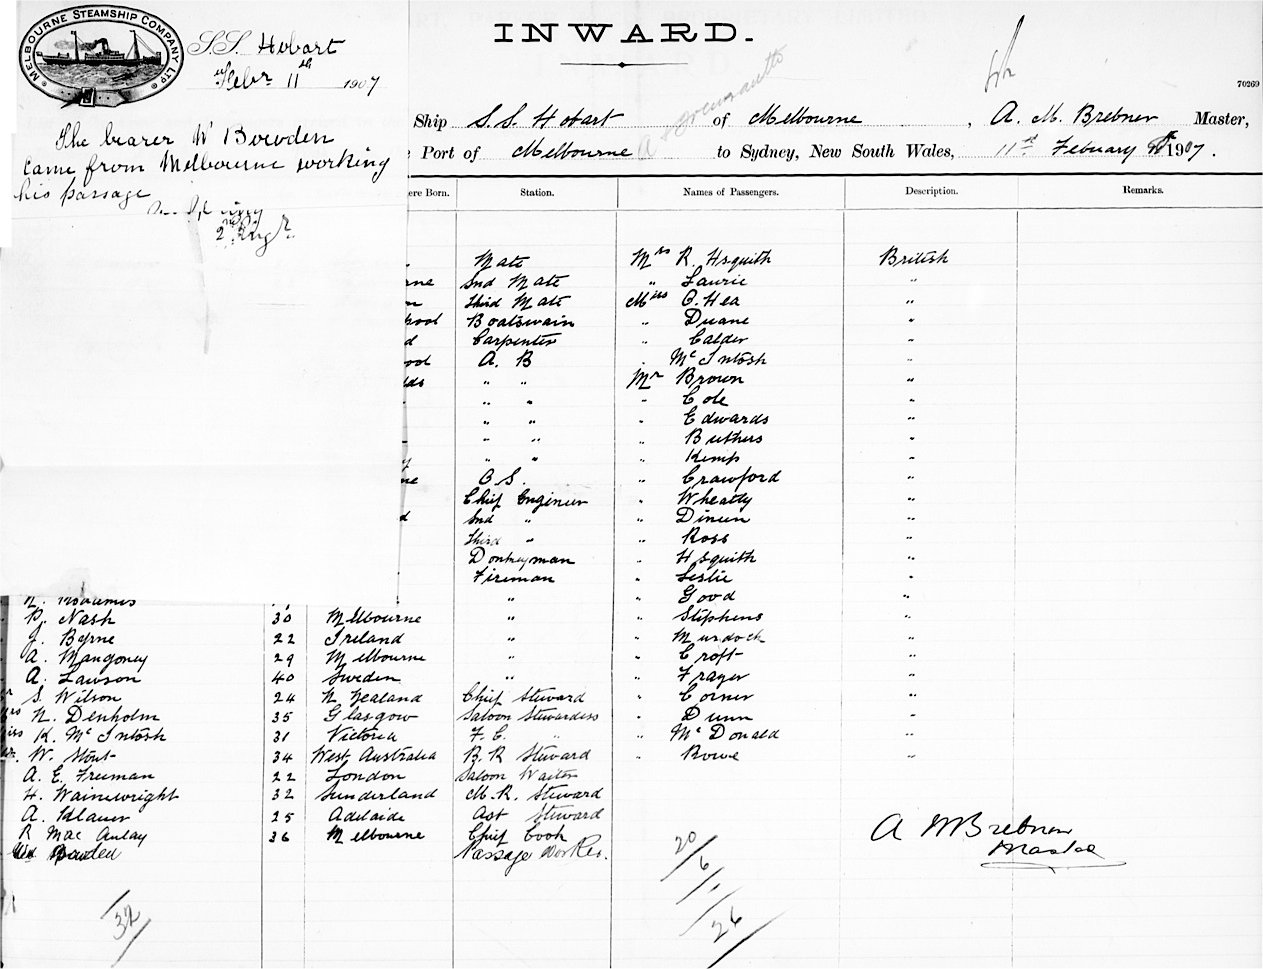 MELBOURNE STEAMSHIP COMPANY LTD
S.S. Hobart
Febr 11th 1907
The bearer W Bowden
came from Melbourne working
his passage
2nd Engr
INWARD.
70269
Ship S.S. Hobart of Melbourne, A. M. Brebner Master,
Port of Melbourne to Sydney, New South Wales, 11th February 1907.
ere Born. Station. Names of Passengers. Description. Remarks.
Mate Mrs R. Asquith British
rne 2nd Mate " Laurie "
n Third Mate Miss O.Hea "
pool Boatswain " Duane "
d Carpenter " Calder "
ool A. B " McIntosh "
lds " " Mr Brown "
" " " Cole "
" " " Edwards "
" " " Buthers "
y " " " Kemp "
ne O.S. " Crawford "
Chief Engineer " Wheatly "
d 2nd " " Dinen "
Third " " Ross "
Donkeyman " Asquith "
Fireman " Leslie "
" " Good "
P. Nash 30 Melbourne " " Stephens "
J. Byrne 22 Ireland " " Murdoch "
A. Mangoney 29 Melbourne " " Croft "
A. Lawson 40 Sweden " " Frazer "
S. Wilson 24 N Zealand Chief Steward " Corner "
N. Denholm 35 Glasgow Saloon Stewardess " Dunn "
K. McIntosh 31 Victoria F.C. " " McDonald "
W. Stout 34 West Australia B.R Steward " Rowe "
A. E. Freeman 22 London Saloon Waiter
H. Wainewright 32 Sunderland M.R. Steward
A. 25 Adelaide Ast Steward
R Mac Aulay 36 Melbourne Chief Cook
Passage Worker.
A M Brebner
Master
32
20
6
26